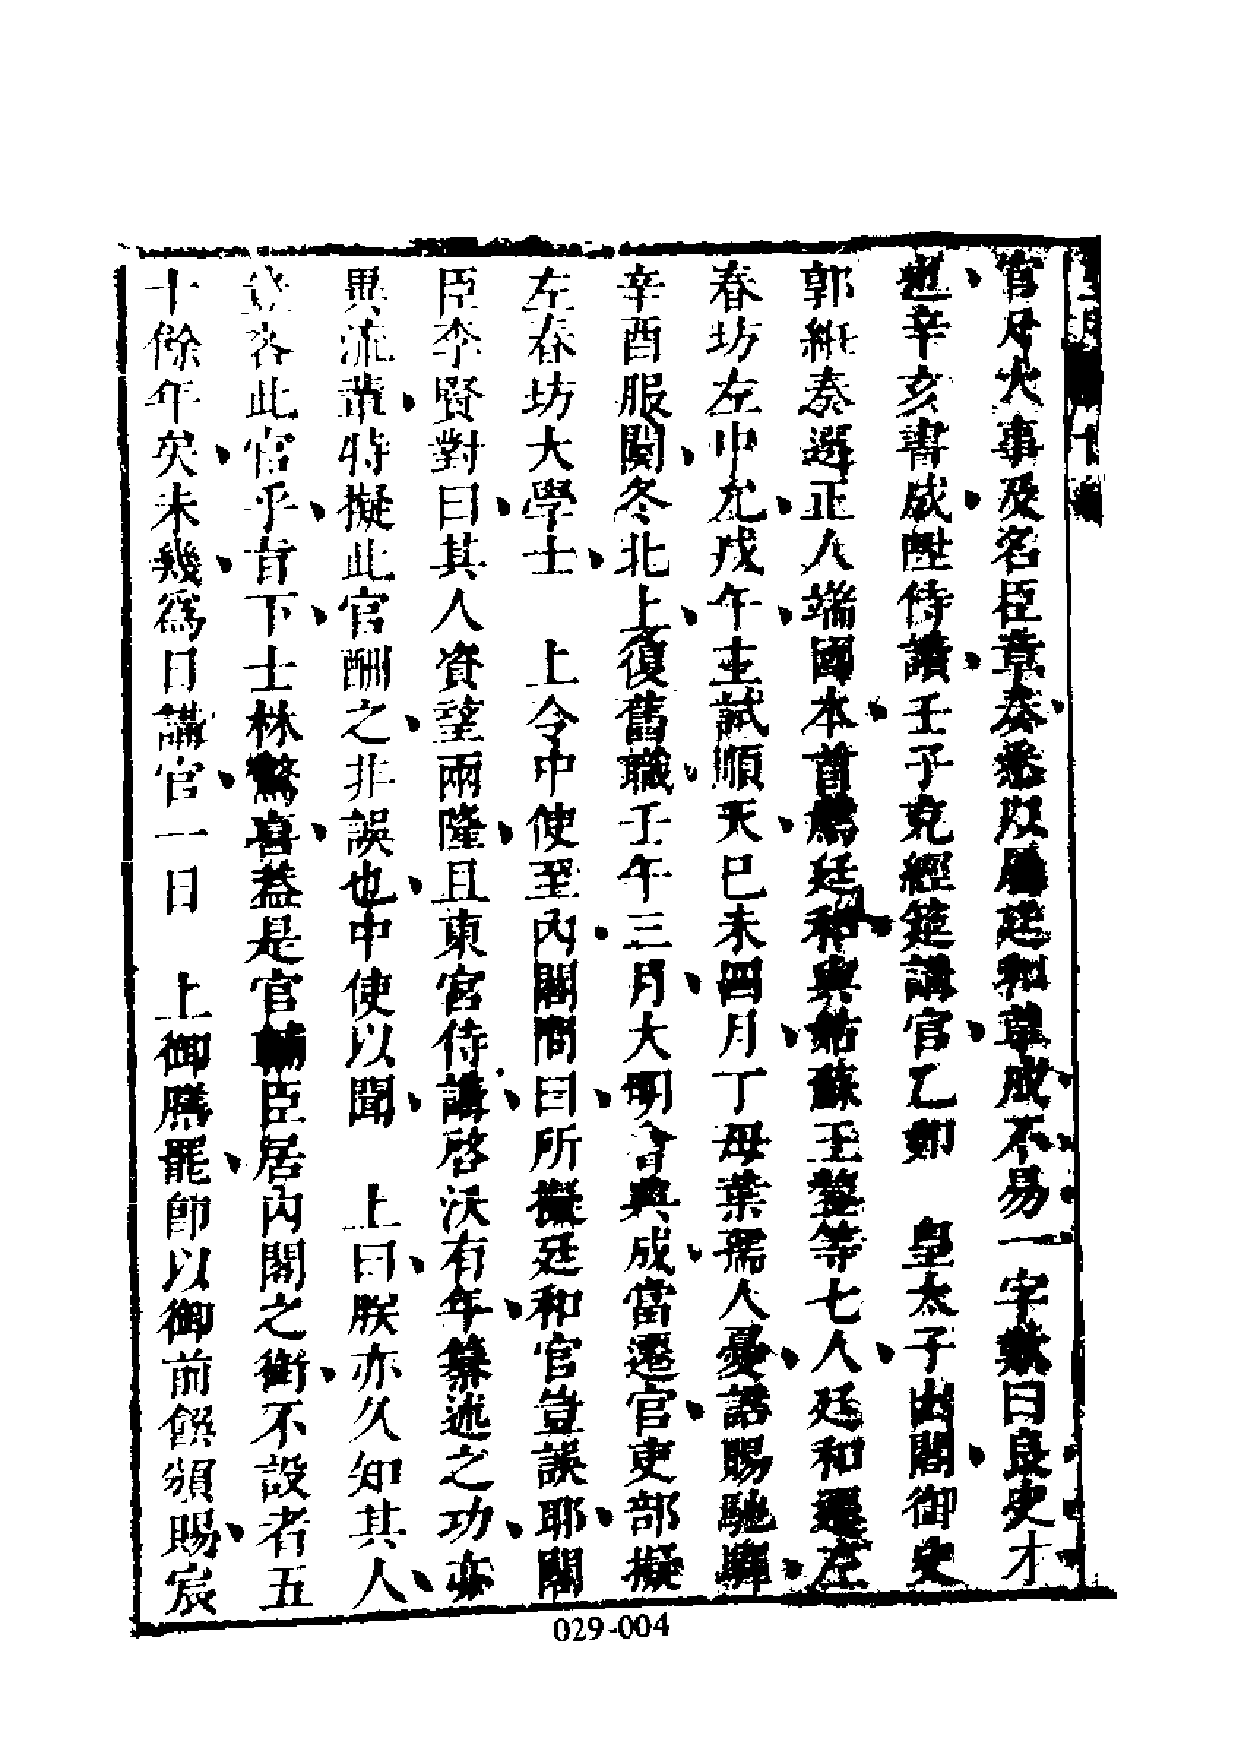 官凡大事及名臣章奏悉以屬廷和草成不易一字歎曰良史才
也辛亥書成陞侍讀壬子充經筵講官乙卯　皇太子出閣御史
郭紝奏選正人端國本首薦廷和與姑蘇王鏊等七人廷和遷左
春坊左中允戊午主試順天己未四月丁母葉孺人憂詔賜馳驛
辛酉服闋冬北上復舊職壬午三月大明會典成當遷官吏部擬
左春坊大學士　上令中使至內閣問曰所擬廷和官豈誤耶閣
臣李賢對曰其人資望兩隆且東宮侍講啓沃有年纂述之功亦
異流輩特擬此官酬之非誤也中使以聞　上曰朕亦久知其人
豈吝此官乎旨下士林驚喜蓋是官輔臣居內閣之銜不設者五
十餘年矣未幾爲日講官一日　上御膳罷卽以御前饌頒賜宸
029-004